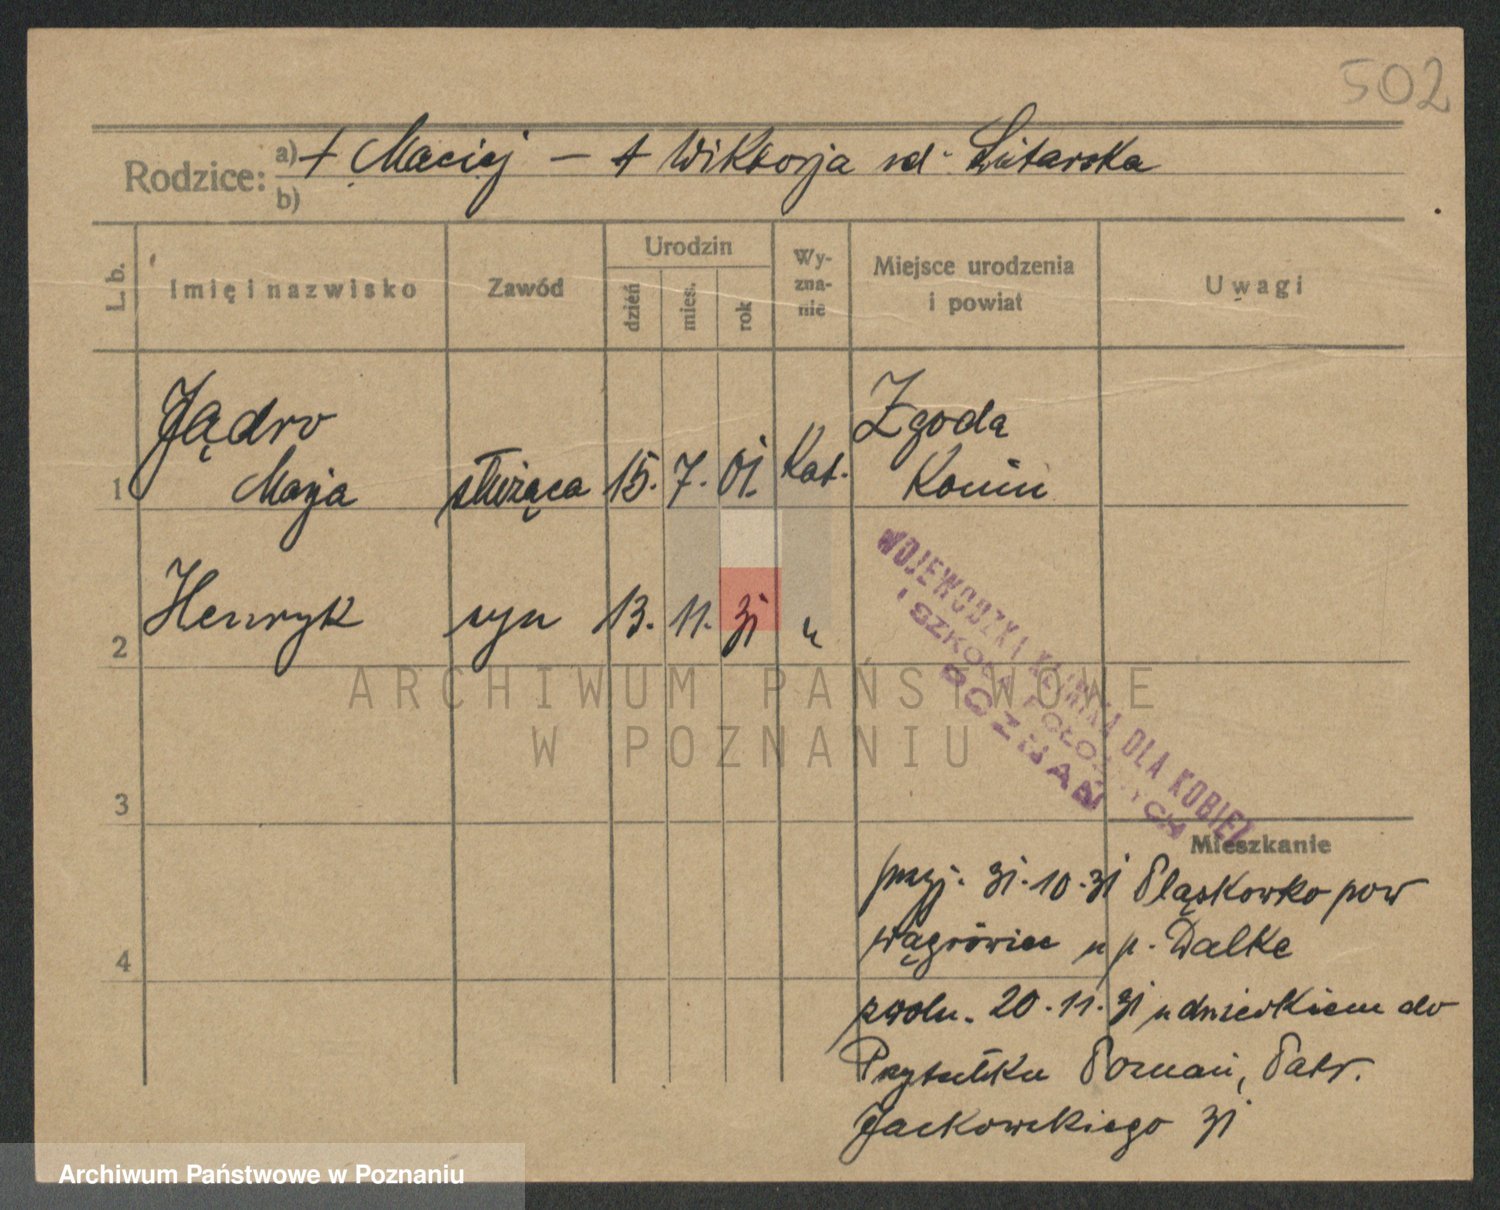 502
Rodzice:
a) + Maciej – + Wiktorja zd. Lutarska
b)
L. b.
Imię i nazwisko
Zawód
Urodzin
dzień
mies.
rok
Wy-
zna-
nie
Miejsce urodzenia
i powiat
Uwagi
Jądro
1 Marja służąca 15. 7. 01. Kat.
Zgoda
Konin
2 Henryk syn 13. 11. 31 "
WOJEWÓDZKA KLINIKA DLA KOBIET
I SZKOŁA POŁOŻNYCH
POZNAŃ
ARCHIWUM PAŃSTWOWE
W POZNANIU
3
4
Mieszkanie
przyj. 31.10.31 Pląskowko pow
wągrówiec u p. Dalke
zwoln. 20.11.31 z dzieckiem do
Przytułku Poznań, Patr.
Jackowskiego 31
Archiwum Państwowe w Poznaniu